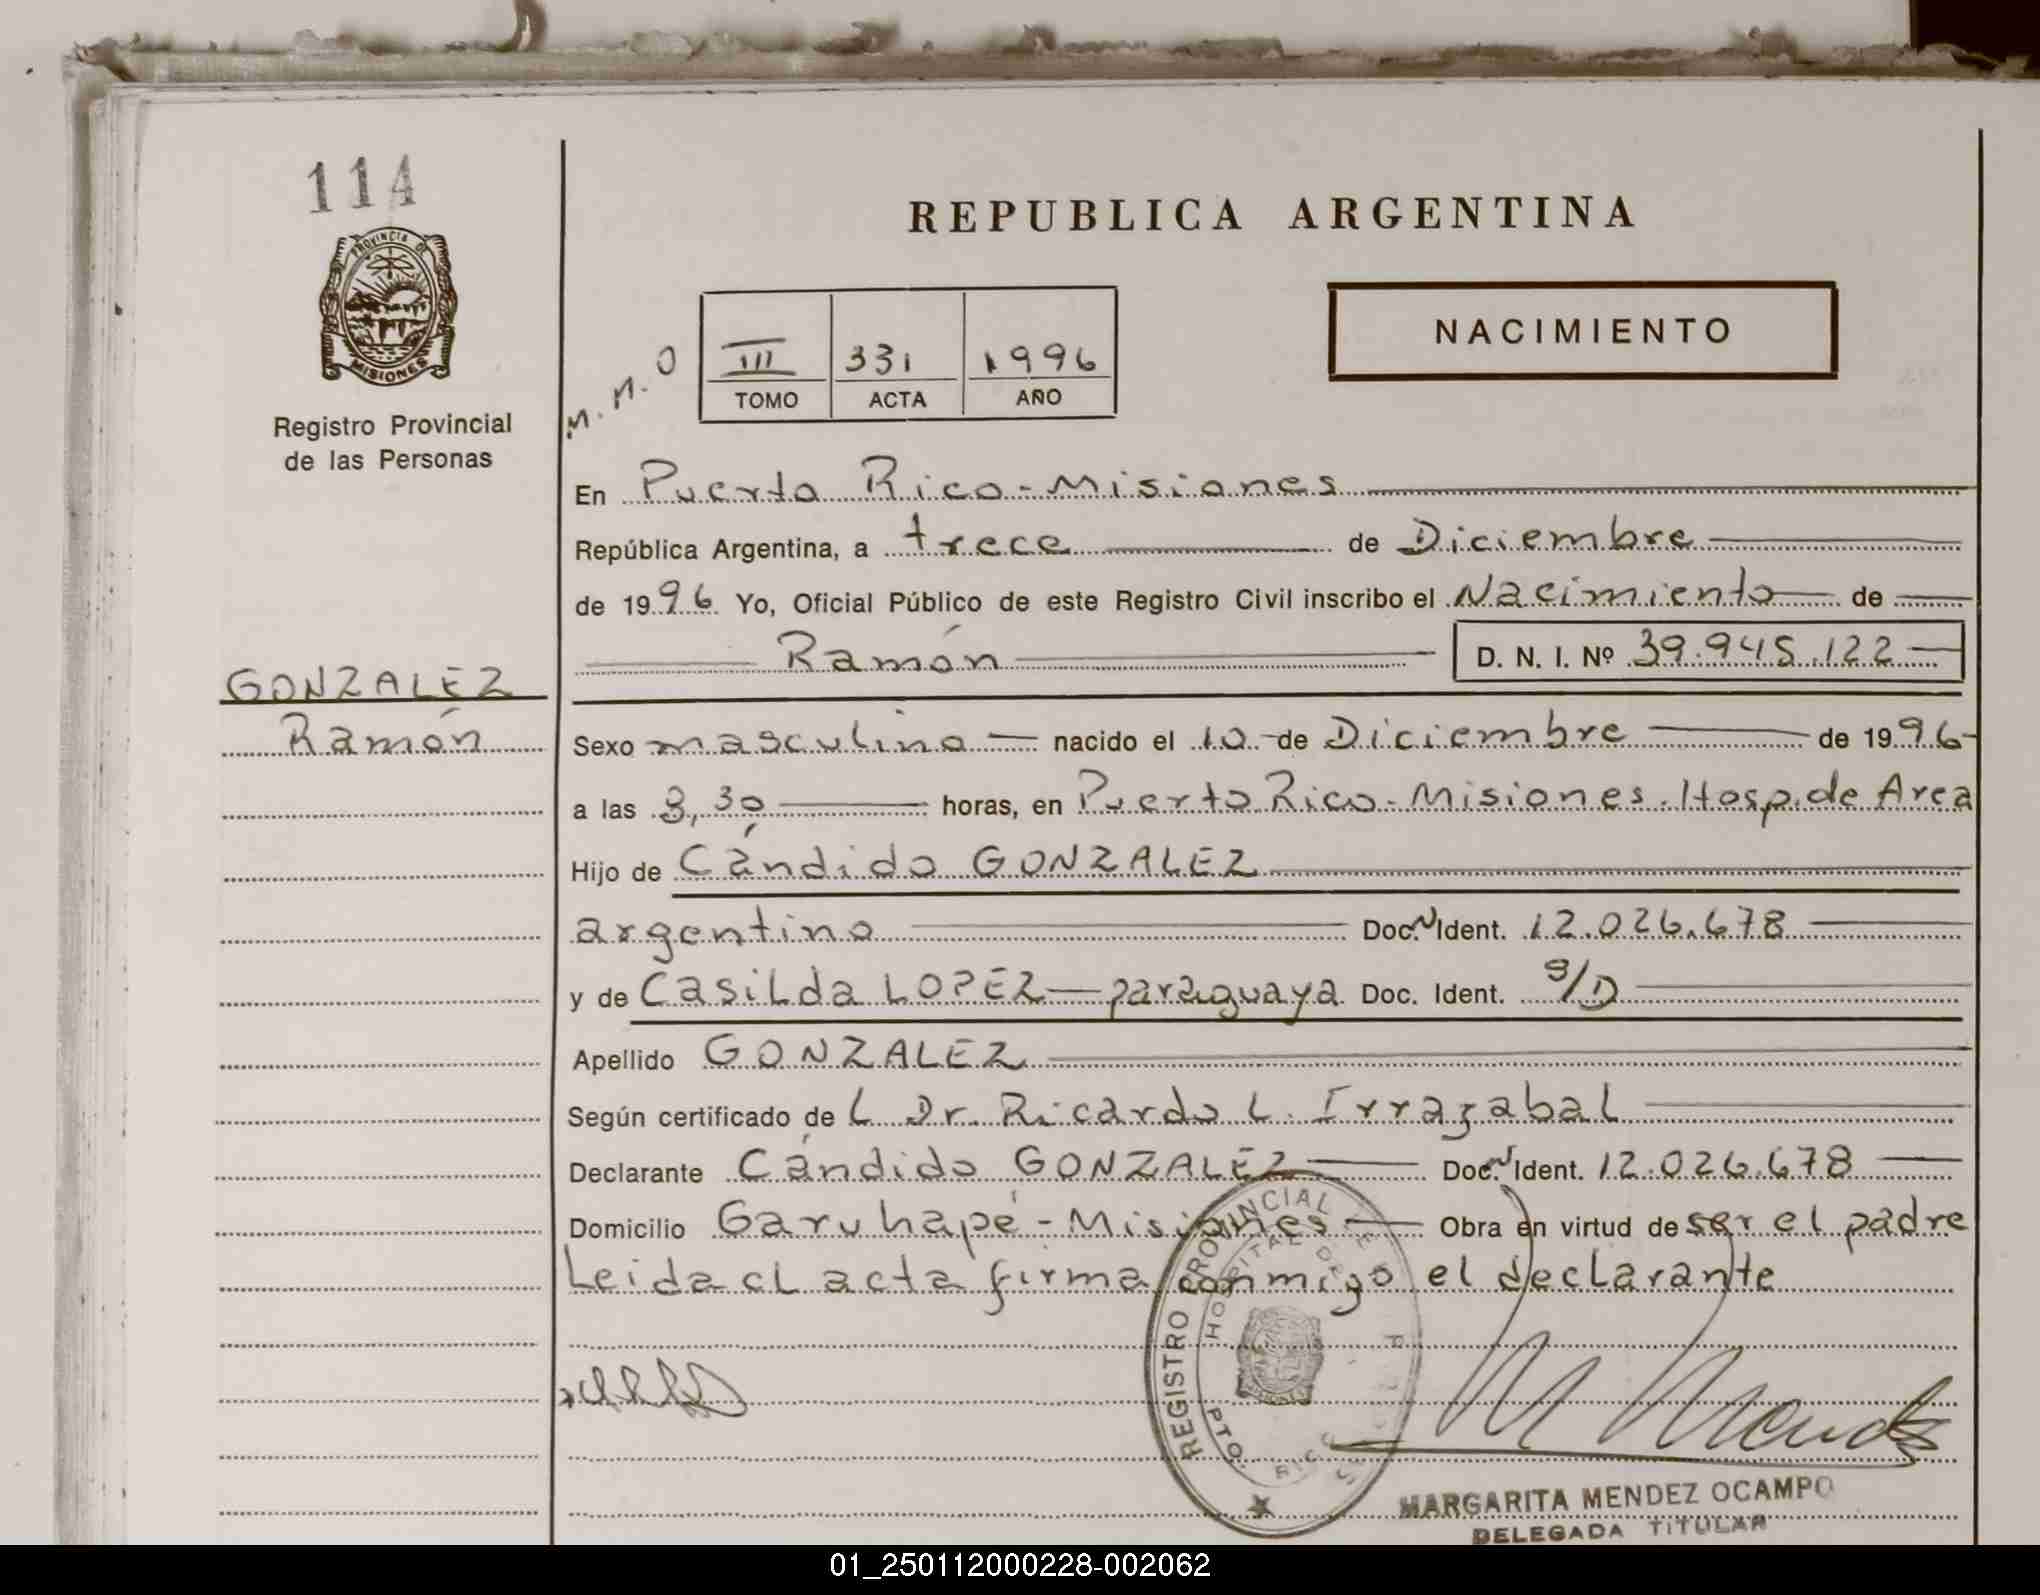 114
PROVINCIA DE
MISIONES
Registro Provincial
de las Personas
GONZALEZ
Ramón
REPUBLICA ARGENTINA
NACIMIENTO
M.M.O
III 331 1996
TOMO ACTA AÑO
En Puerto Rico-Misiones
República Argentina, a trece de Diciembre
de 1996 Yo, Oficial Público de este Registro Civil inscribo el Nacimiento de
Ramón D. N. I. Nº 39.945.122
Sexo masculino nacido el 10 de Diciembre de 1996
a las 8,30 horas, en Puerto Rico-Misiones. Hosp. de Area
Hijo de Cándido GONZALEZ
argentino Doc. N Ident. 12.026.678
y de Casilda LOPEZ - paraguaya Doc. Ident. S/D
Apellido GONZALEZ
Según certificado de L Dr. Ricardo L. Irrazabal
Declarante Cándido GONZALEZ Doc. N Ident. 12.026.678
Domicilio Garuhapé-Misiones Obra en virtud de ser el padre
Leida el acta firma conmigo el declarante
REGISTRO PROVINCIAL DE
HOSPITAL DE
PTO. RICO
M Mendez
MARGARITA MENDEZ OCAMPO
DELEGADA TITULAR
01_250112000228-002062